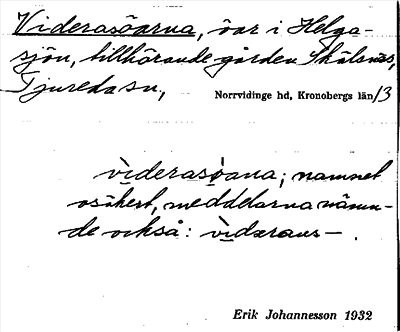 Viderasöarna, öar i Helga-
sjön, tillhörande gården Skälsnäs,
Tjureda sn, Norrvidinge hd, Kronobergs län/3
vìderasöana; namnet
osäkert, meddelarna nämn-
de också: vìdæraus–.
Erik Johannesson 1932